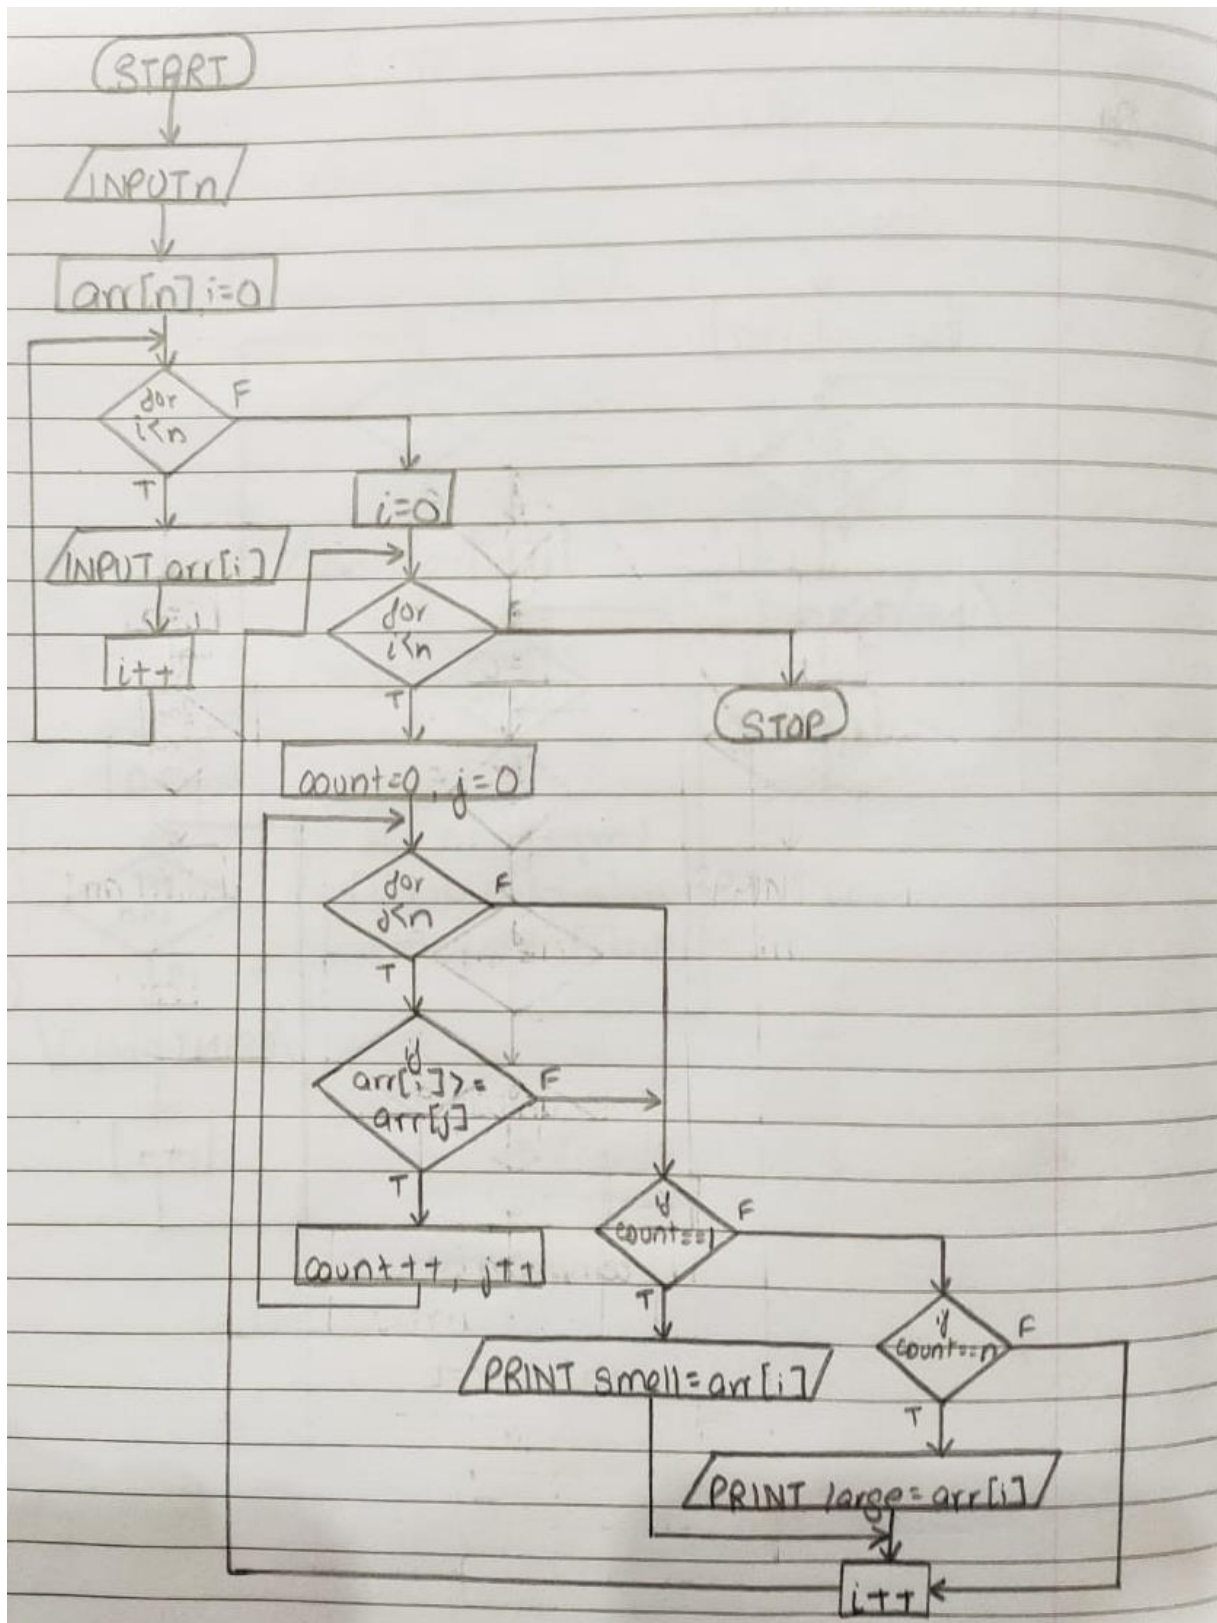 START
INPUT n
arr[n], i=0
for
i<n
F
T
INPUT arr[i]
i++
i=0
for
i<n
F
T
STOP
count=0, j=0
for
j<n
F
T
if
arr[i]>=
arr[j]
F
T
count++, j++
if
count==1
F
T
PRINT small=arr[i]
if
count==n
F
T
PRINT large=arr[i]
i++